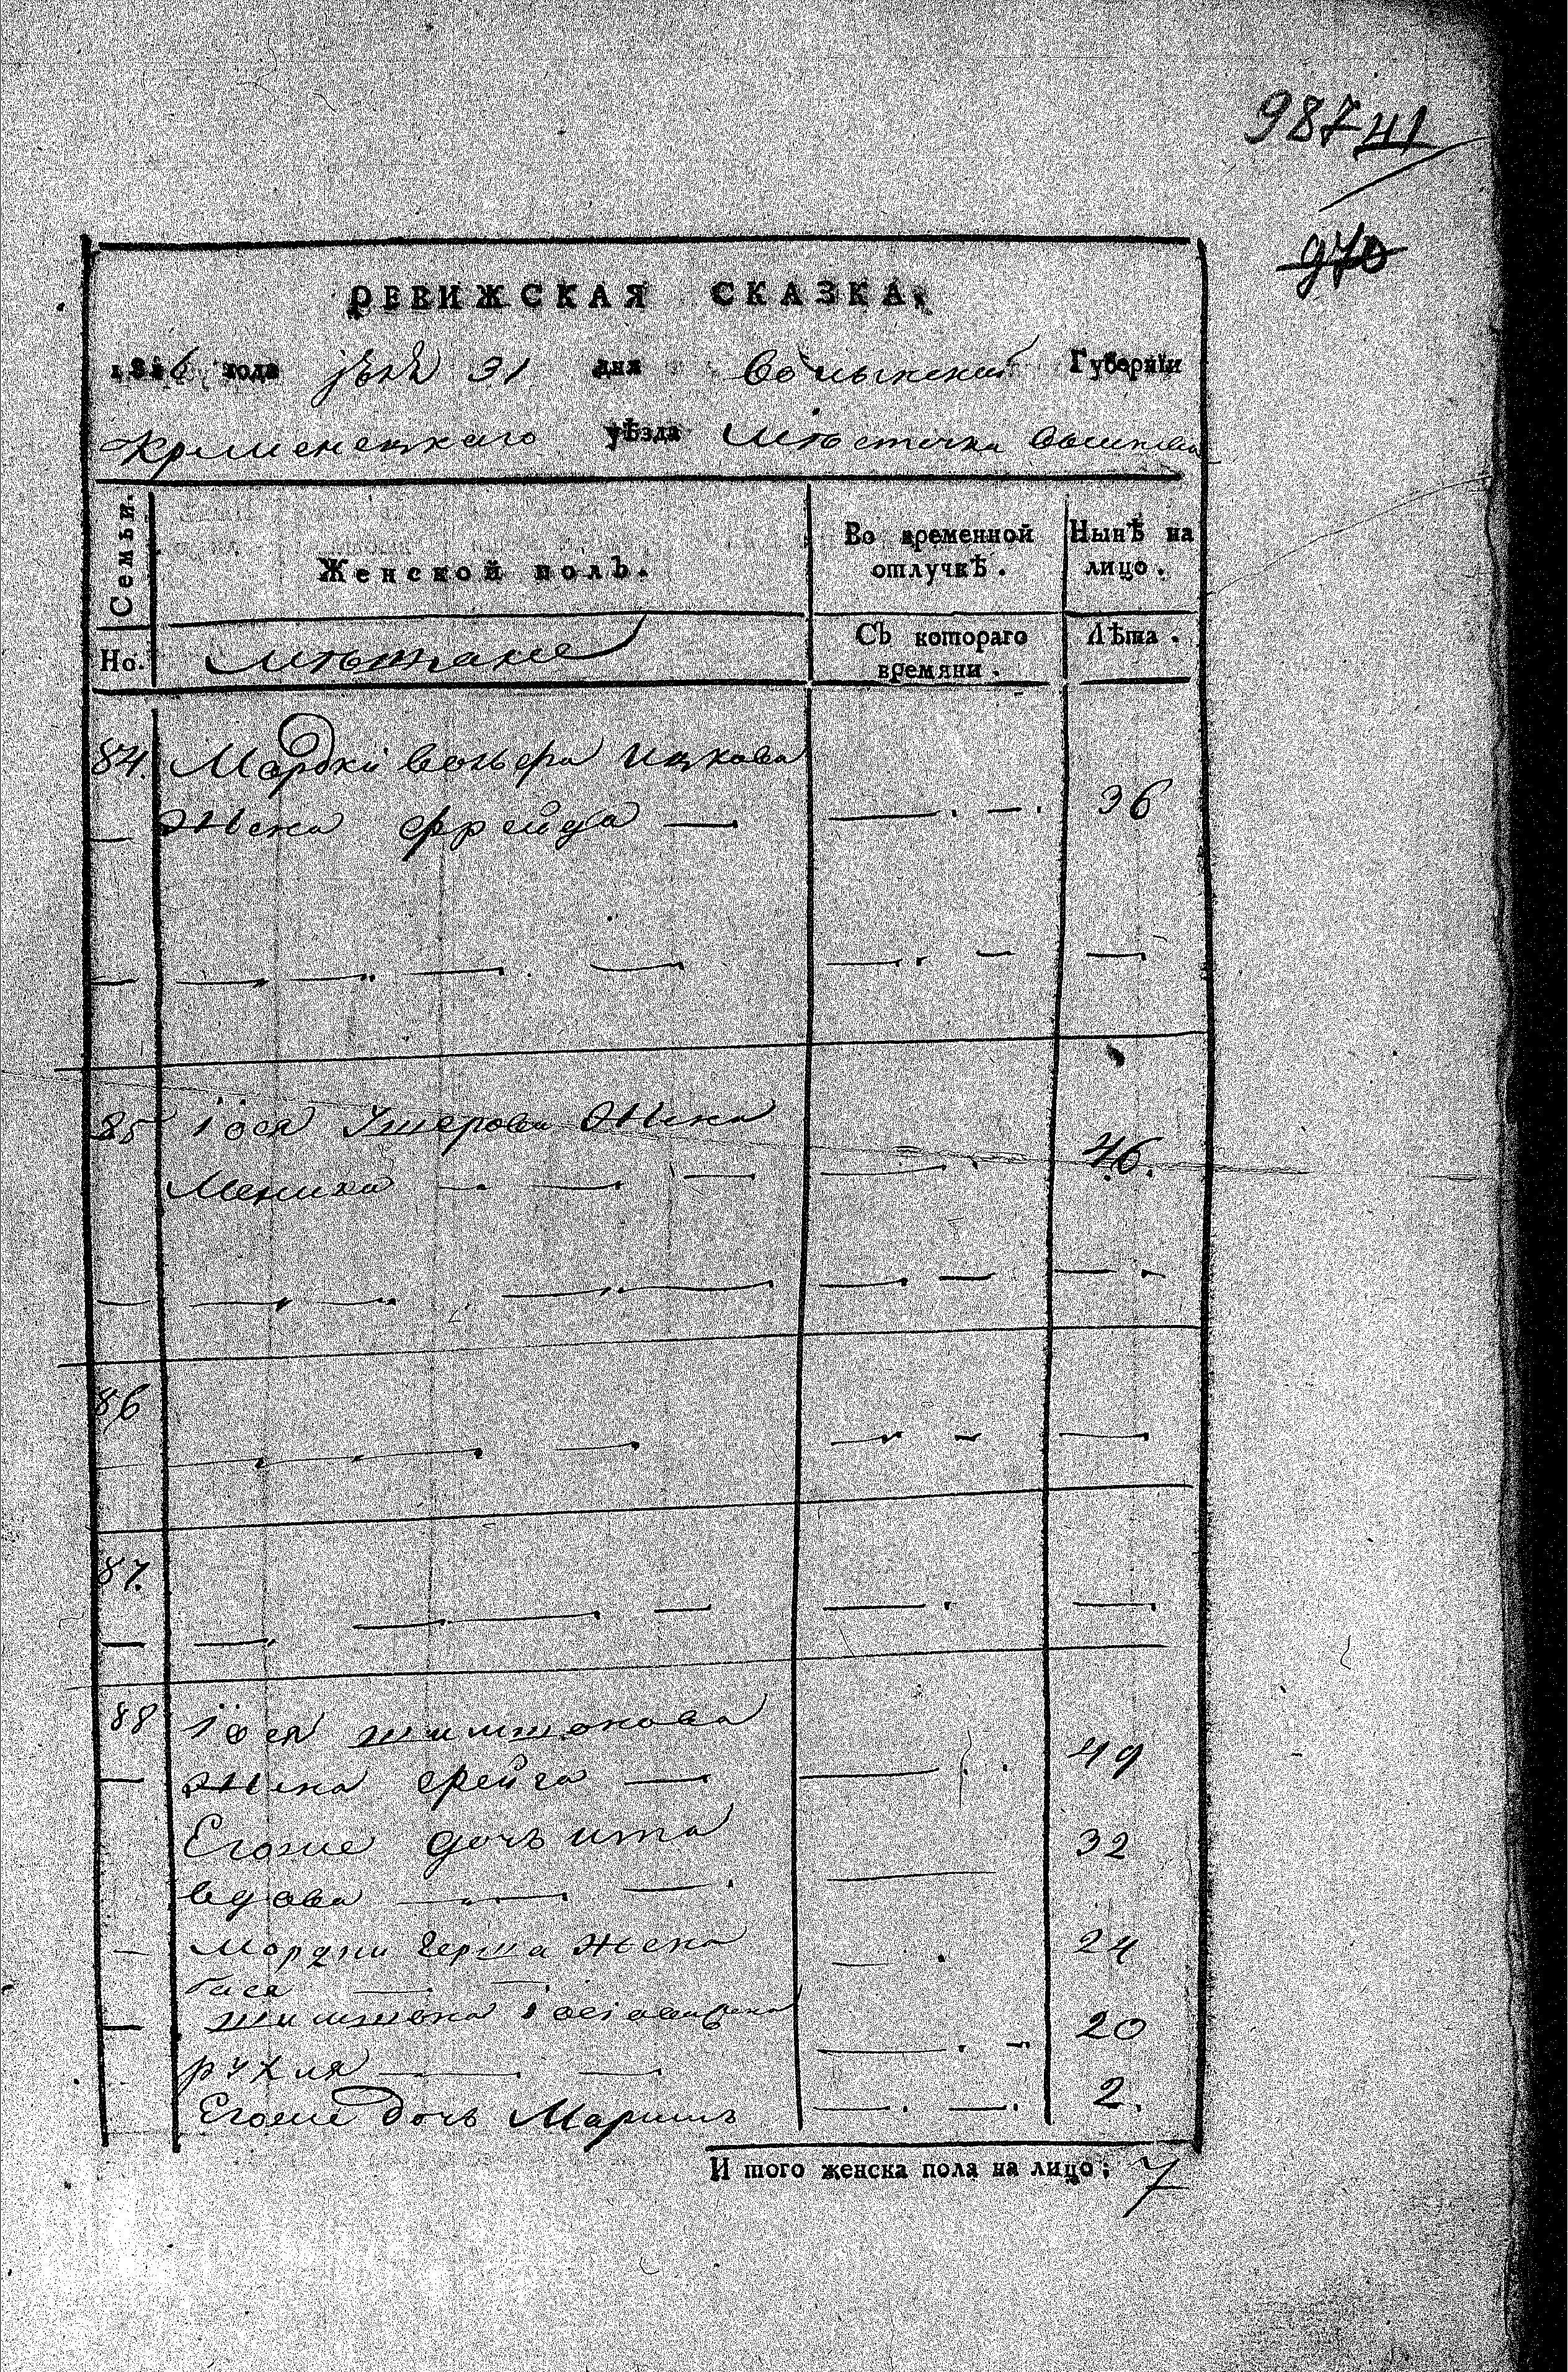 98741
970
РЕВИЖСКАЯ СКАЗКА,
1816 года 31 дня Волынской Губернїи
Кременецкаго уѣзда Мѣстечка
Семьи.
Женской полъ.
Во временной отлучкѣ.
Нынѣ на лицо.
Но.
Съ котораго времяни.
Лѣта.
84. Мордки Вольфа Ицкова
жена Фрейда — 36
85 Іося Умерова жена
46.
86
87.
88 Іося Шимшонова
жена Фейга — 49
Егоже дочь Ита 32
вдова
Мордки Герша жена 24
Бася
Шимшона 20
Рухля
Егоже дочь Маримъ 2.
И того женска пола на лицо; 7